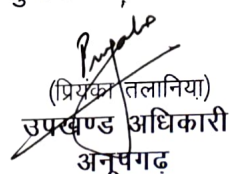 (प्रियंका तलानिया)
उपखण्ड अधिकारी
अनूपगढ़